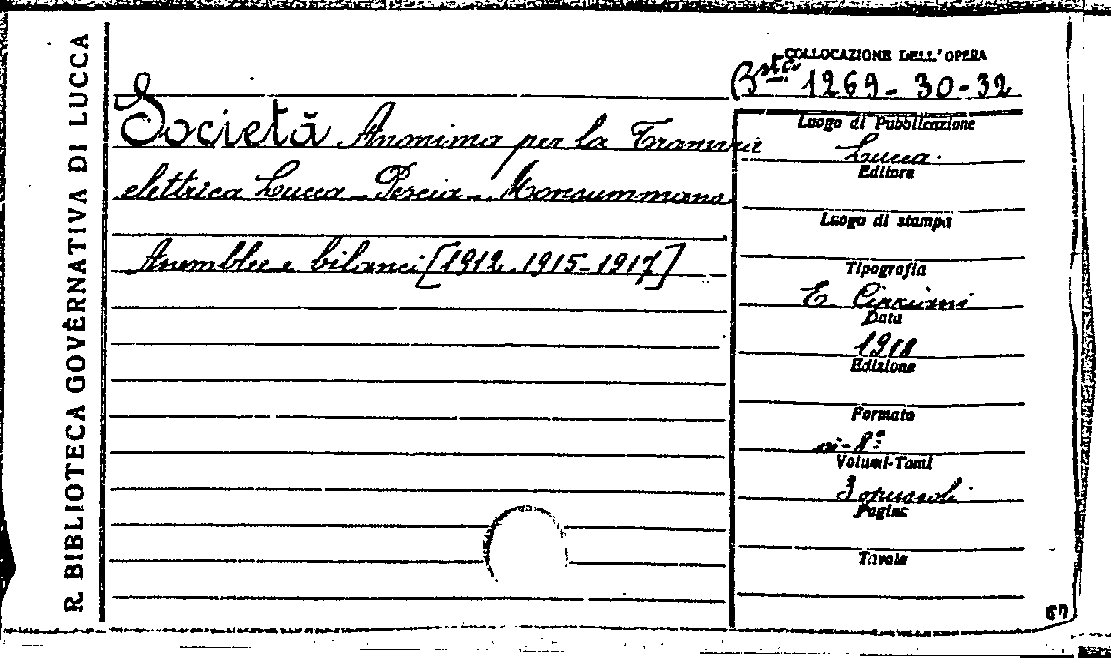 R. BIBLIOTECA GOVERNATIVA DI LUCCA
COLLOCAZIONE DELL'OPERA
1269-30-32
Società Anonima per la Tramvia
elettrica Lucca - Pescia - Monsummano
Assemblee e bilanci [1912.1915-1917]
Luogo di Pubblicazione
Lucca
Editore
Luogo di stampa
Tipografia
E. Cipriani
Data
1918
Edizione
Formato
in-8°
Volumi-Tomi
3 opuscoli
Pagine
Tavole